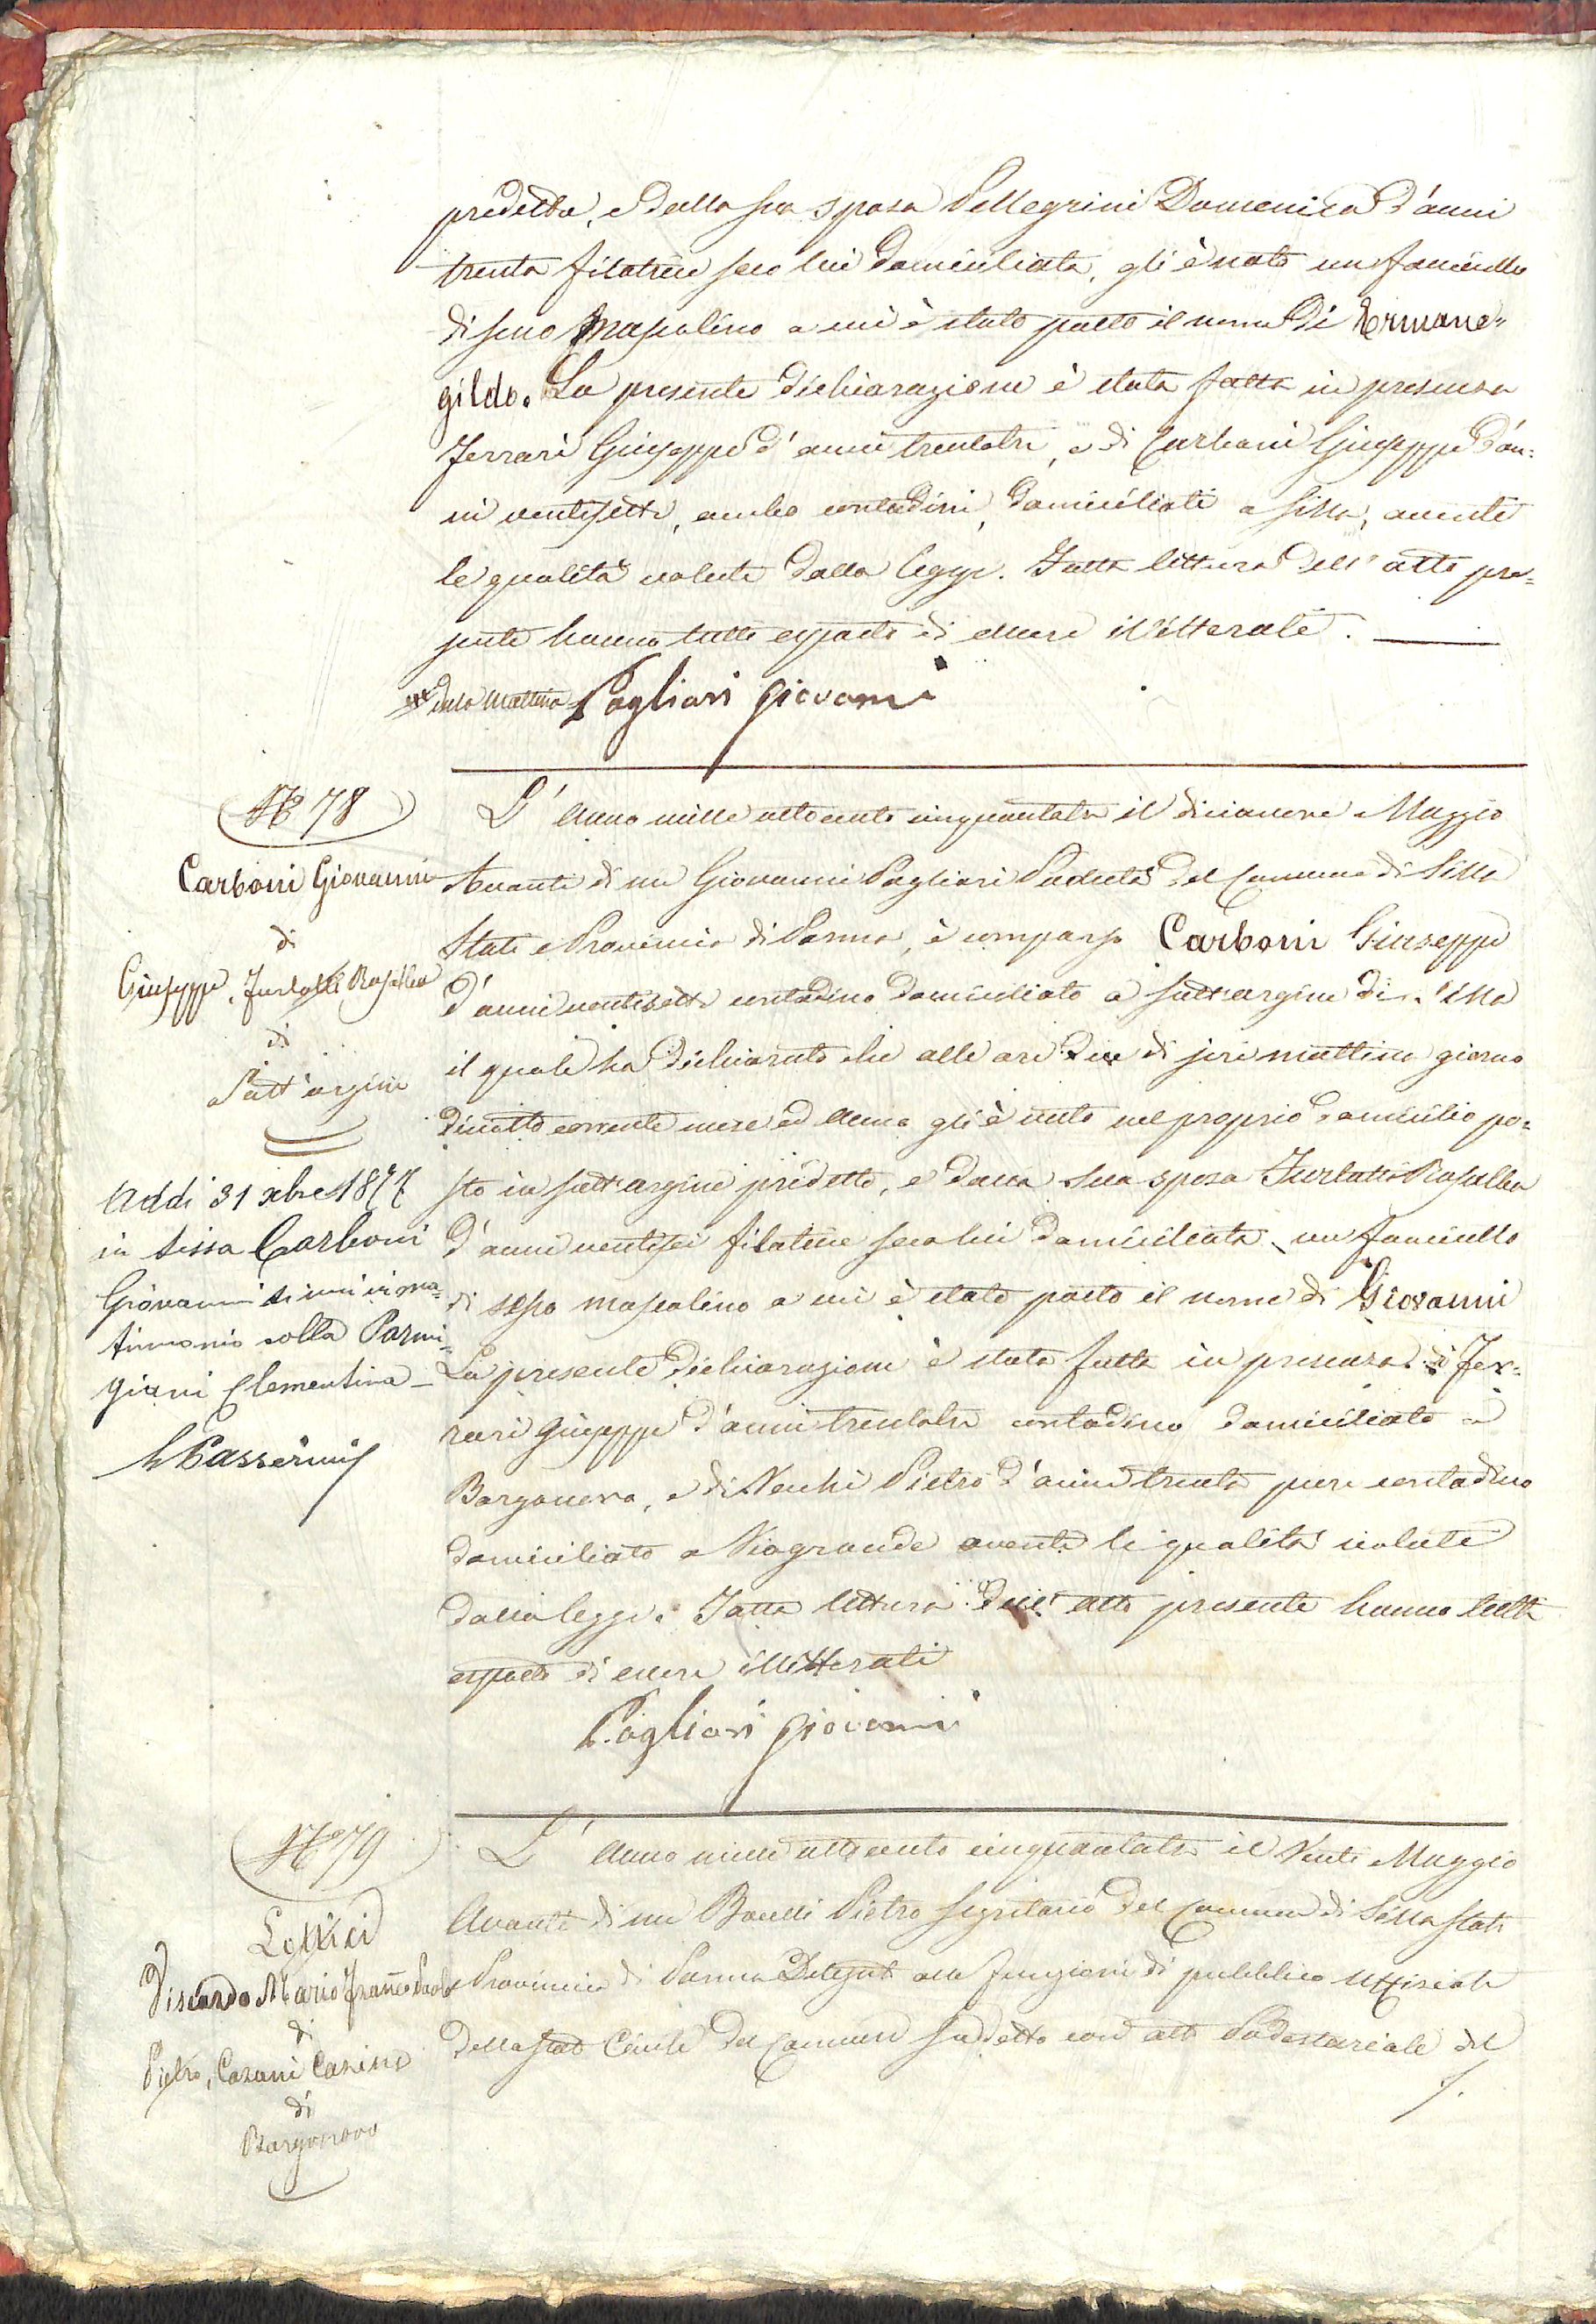 predetto, e dalla sua sposa Pellegrini Domenica d'anni
trenta filatrice seco lui domiciliata, gli è nato un fanciullo
di sesso mascolino a cui è stato posto il nome di Ermene=
gildo. La presente dichiarazione è stata fatta in presenza
Ferrari Giuseppe d'anni trentatre, e di Carboni Giuseppe d'an=
ni ventisette, ambo contadini, domiciliati a Sissa, aventi
le qualità volute dalla legge. Fatta lettura dell'atto pre=
sente hanno tutti esposto di essere illitterati.
della mattina Pagliari Giovanni
N° 78
Carboni Giovanni
di
Giuseppe, Furlotti Rosalba
di
Sott'argine
Addi 31 xbre 1877
in Sissa Carboni
Giovanni si unì in ma=
trimonio colla Parmi=
giani Clementina
L'Anno mille ottocento cinquantatre il diecianove Maggio
Avanti di me Giovanni Pagliari Podestà del Comune di Sissa
Stati e Provincia di Parma, è comparso Carboni Giuseppe
d'anni ventisette contadino domiciliato a Sottargine di Sissa
il quale ha dichiarato che alle ore due di jeri mattina giorno
dieciotto corrente mese ed anno gli è nato nel proprio domicilio po=
sto in Sottargine predetto, e dalla sua sposa Furlotti Rosalba
d'anni ventisei filatrice seco lui domiciliata un fanciullo
di sesso mascolino a cui è stato posto il nome di Giovanni
La presente dichiarazione è stata fatta in presenza di Fer=
rari Giuseppe d'anni trentatre contadino domiciliato a
Borgonovo, e di Vecchi Pietro d'anni trenta pure contadino
domiciliato a Viagrande aventi le qualità volute
dalla legge. Fatta lettura dell'atto presente hanno tutti
esposto di essere illitterati
Pagliari Giovanni
N° 79
Viscardo Mario Franco Paolo
di
Pietro, Casani
di
Borgonovo
L'Anno mille ottocento cinquantatre il Venti Maggio
Avanti di me Pietro Segretario del Comune di Sissa Stati
e Provincia di Parma Delegato alle funzioni di pubblico Uffiziale
dello Stato Civile del Comune suddetto con atto Podestariale del
/.